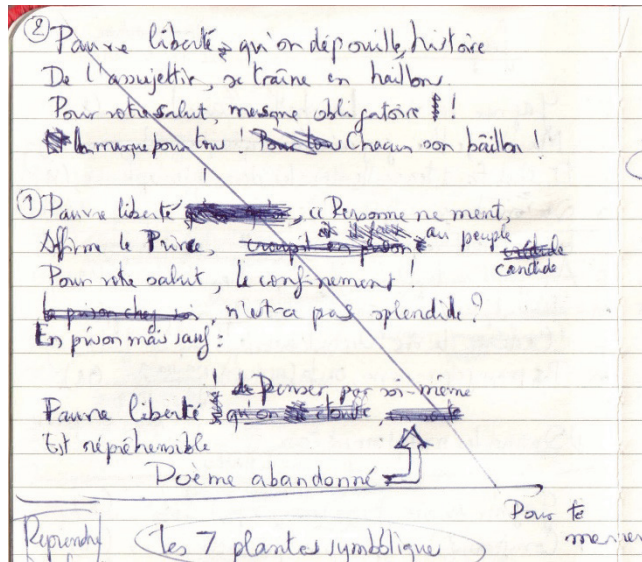 ② Pauvre liberté, qu'on dépouille, histoire
De l'assujettir, se traîne en haillons.
Pour votre salut, masque obligatoire !
Un masque pour tous ! Pour tous Chacun son bâillon !
① Pauvre liberté !, « Personne ne ment,
Affirme le Prince, croupit en prison au peuple crédule
candide
Pour votre salut, le confinement !
la prison chez soi, n'est-ce pas splendide ?
En prison mais sauf :
! Penser par soi-même
Pauvre liberté qu'on étouffe,
Est répréhensible
Poème abandonné
Pour te
Reprendre
Les 7 plantes symbolique
mener